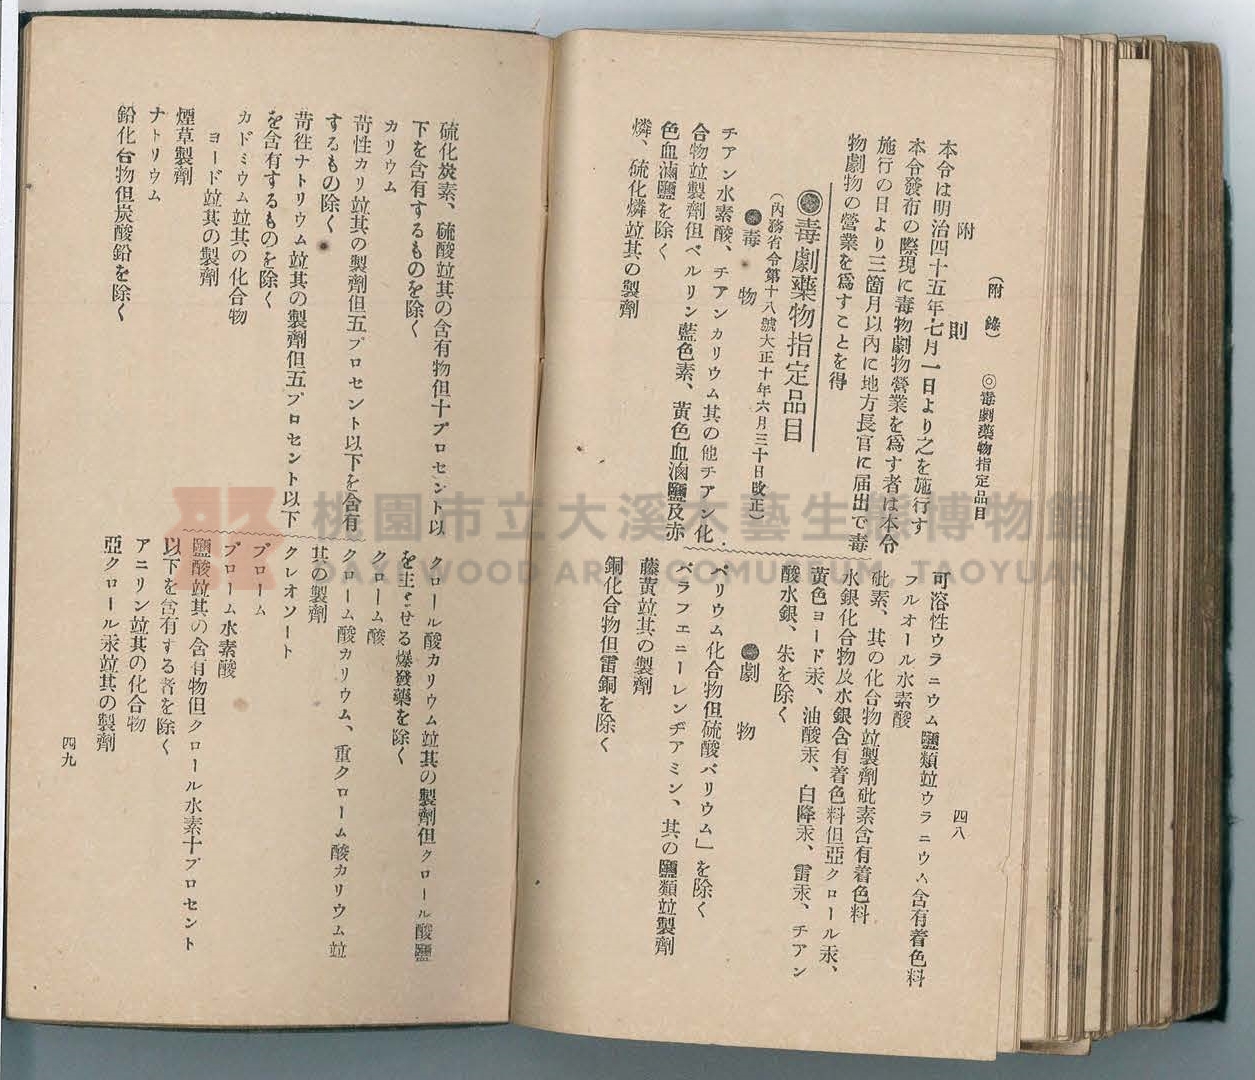 (附錄) ◎毒劇藥物指定品目 四八
附則
本令は明治四十五年七月一日より之を施行す
本令發布の際現に毒物劇物營業を爲す者は本令
施行の日より三箇月以內に地方長官に届出で毒
物劇物の營業を爲すことを得
毒劇藥物指定品目
(內務省令第十八號大正十年六月三十日改正)
毒物
チアン水素酸、チアンカリウム其の他チアン化
合物竝製劑但ベルリン藍色素、黃色血滷鹽及赤
色血滷鹽を除く
燐、硫化燐竝其の製劑
可溶性ウラニウム鹽類竝ウラニウム含有着色料
フルオール水素酸
砒素、其の化合物竝製劑砒素含有着色料
水銀化合物及水銀含有着色料但亞クロール汞、
黃色ヨード汞、油酸汞、白降汞、雷汞、チアン
酸水銀、朱を除く
劇物
バリウム化合物但硫酸バリウム」を除く
パラフエニーレンヂアミン、其の鹽類竝製劑
藤黃竝其の製劑
銅化合物但雷銅を除く
硫化炭素、硫酸竝其の含有物但十プロセント以
下を含有するものを除く
カリウム
苛性カリ竝其の製劑但五プロセント以下を含有
するもの除く
苛性ナトリウム竝其の製劑但五プロセント以下
を含有するものを除く
カドミウム竝其の化合物
ヨード竝其の製劑
煙草製劑
ナトリウム
鉛化合物但炭酸鉛を除く
クロール酸カリウム竝其の製劑但クロール酸鹽
を主とせる爆發藥を除く
クローム酸
クローム酸カリウム、重クローム酸カリウム竝
其の製劑
クレオソート
ブローム
ブローム水素酸
鹽酸竝其の含有物但クロール水素十プロセント
以下を含有する者を除く
アニリン竝其の化合物
亞クロール汞竝其の製劑
四九
桃園市立大溪木藝生態博物館
DAXI WOOD ART ECOMUSEUM, TAOYUAN